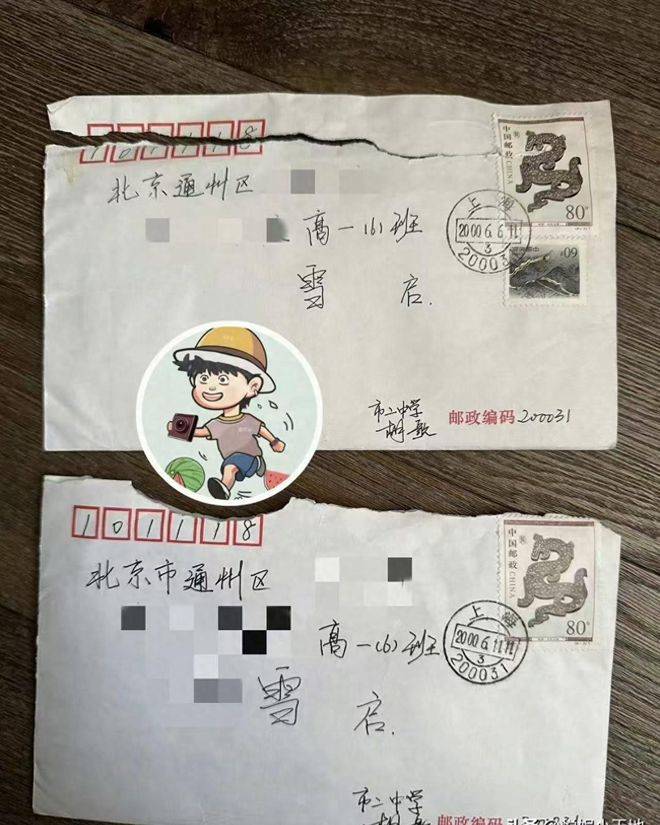 101118
中国邮政
CHINA
80分
北京通州区
上海
2000.6.6.11
3
200031
高一(6)班
雪 启.
市二中学
胡歌
邮政编码 200031
101118
中国邮政
CHINA
80分
北京市通州区
上海
2000.6.11.11
3
200031
高一(6)班
雪 启.
市二中学
胡歌
邮政编码